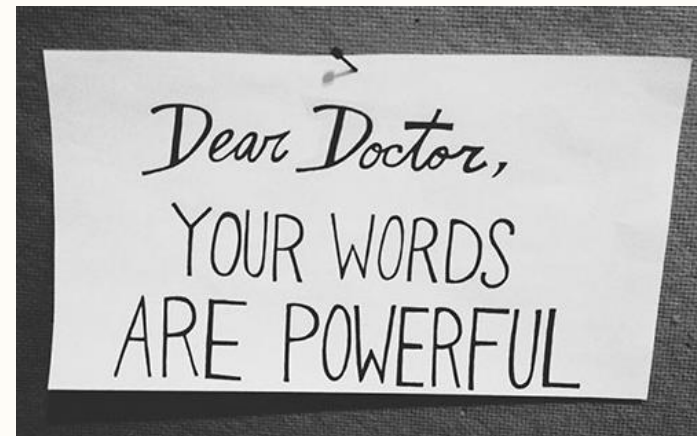 Dear Doctor,
YOUR WORDS
ARE POWERFUL